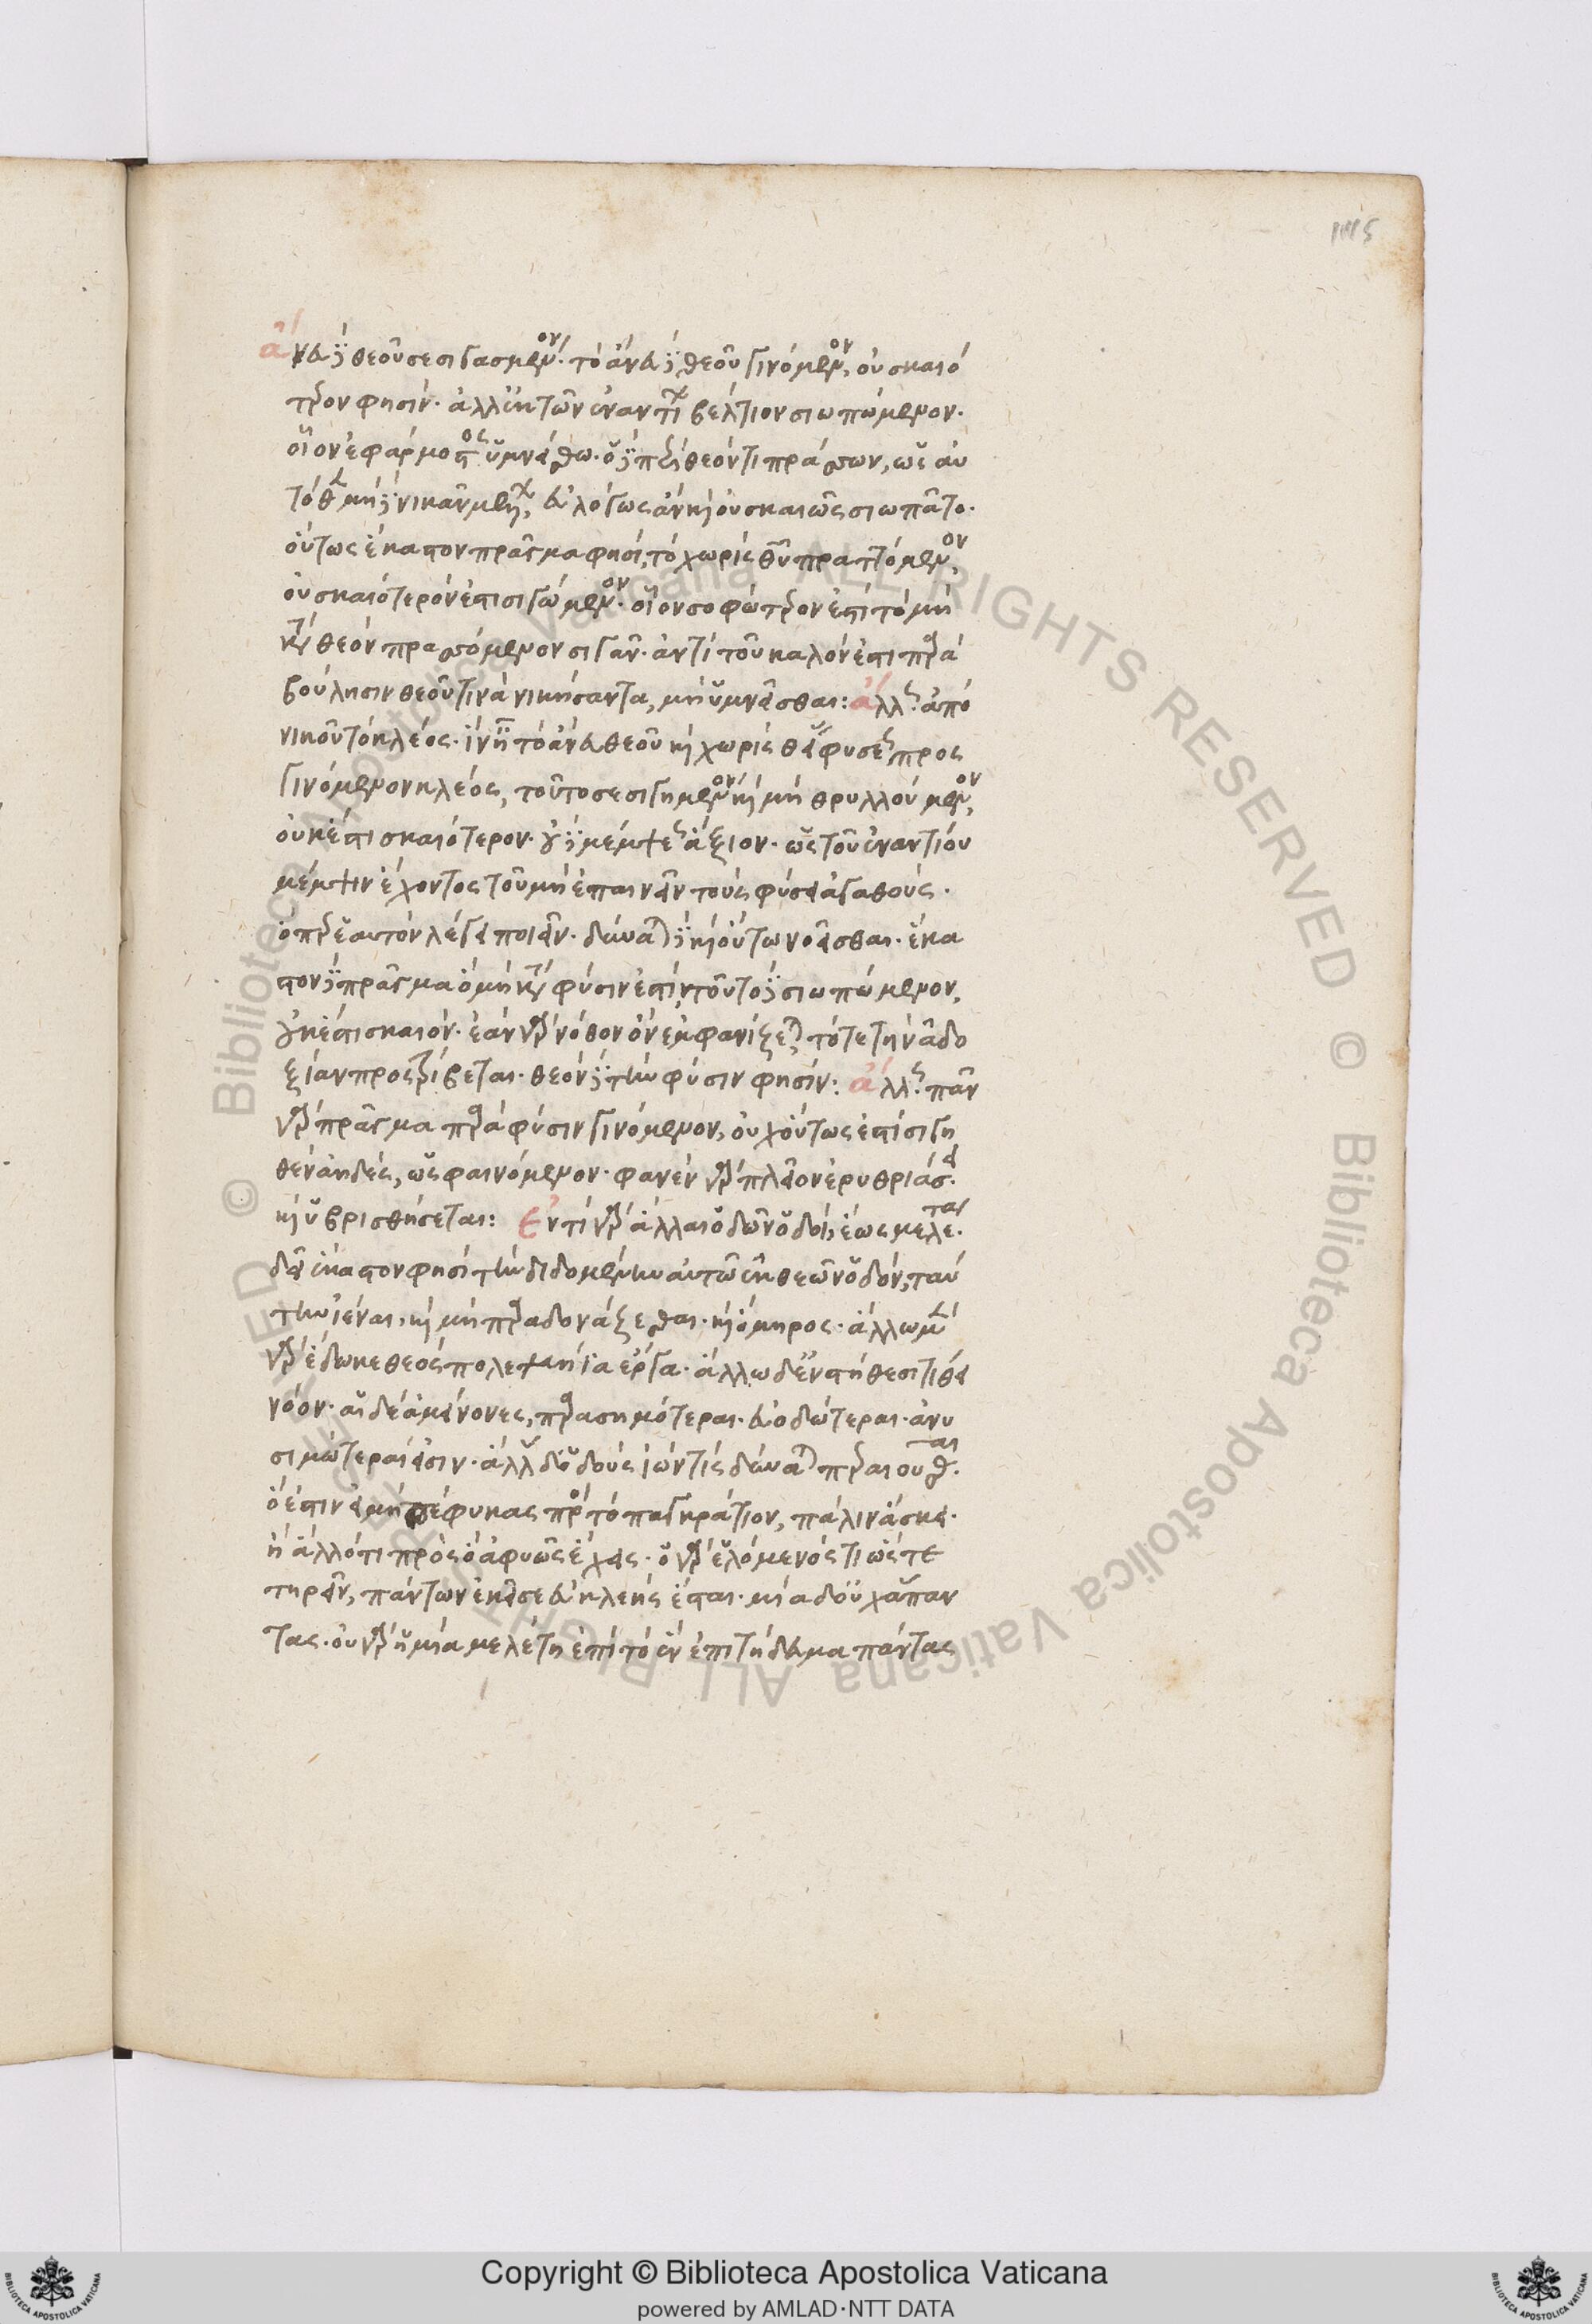 1115
ἄνευ δὲ θεοῦ σεσιγασμένον· τὸ ἄνευ δὲ θεοῦ γινόμενον, οὐ σκαιό
τερον φησίν· ἀλλ' ἐκ τῶν ἐναντίων βέλτιον σιωπώμενον·
οἷον ἐφάρμοστος ὑμνείσθω· ὁ δὲ περὶ θεόν τι πράσσων, ὡς αὐ
τόθεν μὴ δὲ νικᾶν μένειν, εὐλόγως ἂν καὶ οὐ σκαιῶς σιωπᾶτο·
οὕτως ἕκαστον πρᾶγμα φησί, τὸ χωρὶς θεοῦ πραττόμενον,
οὐ σκαιότερόν ἐστι σιγώμενον· οἷον σοφώτερον ἐστὶ τὸ μὴ
κατὰ θεὸν πρασσόμενον σιγᾶν· ἀντὶ τοῦ καλόν ἐστι παρὰ
βούλησιν θεοῦ τινὰ νικήσαντα, μὴ ὑμνεῖσθαι: ἄλλως· ἀπὸ
νικοῦν τὸ κλέος· ἵν' ᾖ τὸ ἄνευ θεοῦ καὶ χωρὶς θείας φύσεως προς
γινόμενον κλέος, τοῦτο σεσιγημένον καὶ μὴ θρυλλούμενον,
οὐκ ἔστι σκαιότερον· οὐδὲ μέμψεως ἄξιον· ὡς τοῦ ἐναντίου
μέμψιν ἔχοντος τοῦ μὴ ἐπαινεῖν τοὺς φύσει ἀγαθούς·
ὅπερ ἑαυτὸν λέγει ποιεῖν· δύναται δὲ καὶ οὕτω νοεῖσθαι· ἕκα
στον δὲ πρᾶγμα ὃ μὴ κατὰ φύσιν ἐστίν, τοῦτο δὲ σιωπώμενον,
οὐκ ἔστι σκαιόν· ἐὰν γὰρ νόθον ὂν ἐμφανίζεται, τότε τὴν ἀδο
ξίαν προστρίβεται· θεὸν δὲ τὴν φύσιν φησίν: ἄλλως· πᾶν
γὰρ πρᾶγμα παρὰ φύσιν γινόμενον, οὐχ οὕτως ἐστὶ σιγη
θὲν ἀηδές, ὡς φαινόμενον· φανὲν γὰρ πλεῖον ἐρυθριάσει·
καὶ ὑβρισθήσεται: ἐντὶ γὰρ ἄλλαι ὁδῶν ὁδοί, ἕως μελέται·
δεῖ ἕκαστον φησὶ τὴν διδομένην αὐτῶ ἐκ θεῶν ὁδόν, ταύ
την ἰέναι, καὶ μὴ παραδονάξεσθαι· καὶ ὅμηρος· ἄλλω μὲν
γὰρ ἔδωκε θεὸς πολεμήϊα ἔργα· ἄλλω δ' ἐν στήθεσι τιθεῖ
νόον· αἱ δὲ ἀμείνονες, παρασημότεραι· εὐοδώτεραι· ἀνυ
σιμώτεραί εἰσιν· ἀλλ' οὐδ' ὁδοὺς ἰών τις δύναται περαιοῦσθαι·
ὅ ἐστιν εἰ μὴ πέφυκας πρὸς τὸ παγκράτιον, πάλιν ἄσκει·
ἢ ἄλλό τι πρὸς ὃ ἀφυῶς ἔχεις· ὁ γὰρ ἑλόμενός τι ὥστε
τηρεῖν, πάντων ἐκεῖσε εὐκλεὴς ἔσται· μία δ' οὐχ ἅπαν
τας· οὐ γὰρ ἡ μία μελέτη ἐπὶ τὸ ἓν ἐπιτήδευμα πάντας
© Biblioteca Apostolica Vaticana ALL RIGHTS RESERVED
Copyright © Biblioteca Apostolica Vaticana
powered by AMLAD·NTT DATA